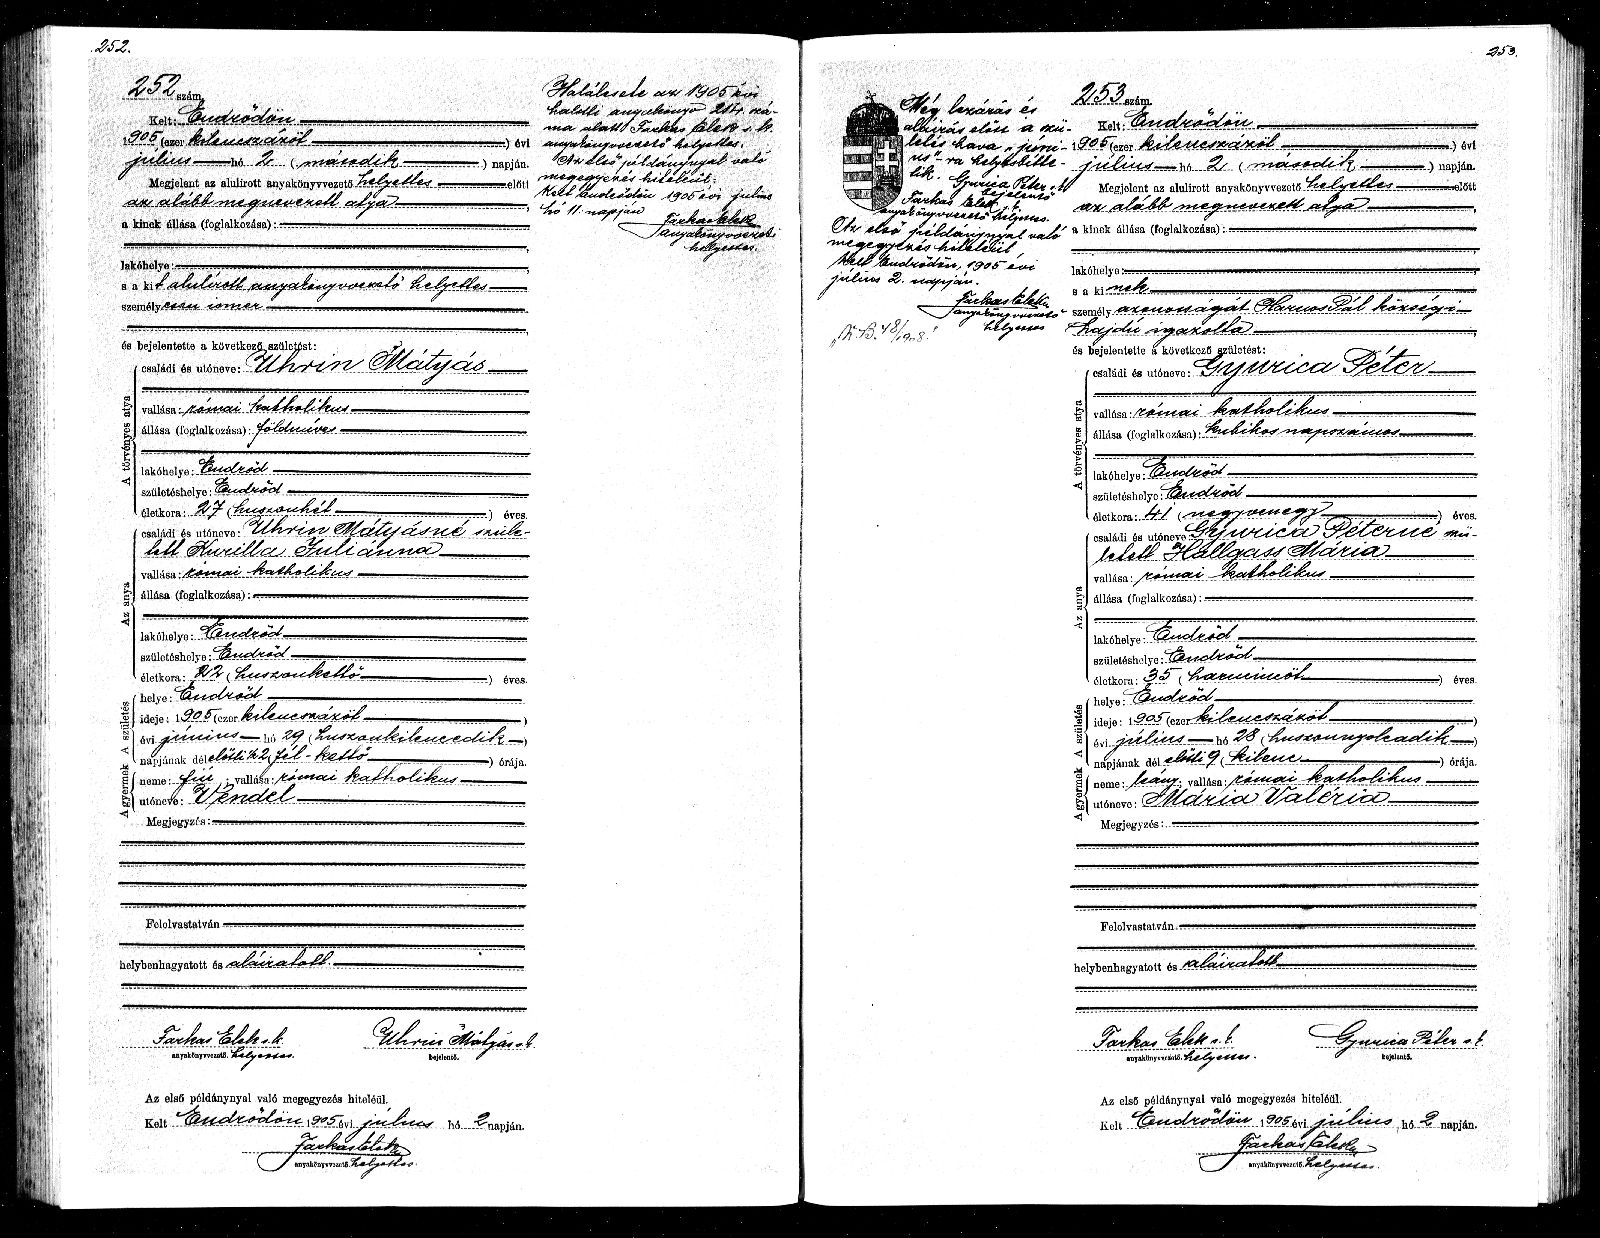 252.
252 szám.
Kelt: Endrődön
1905 (ezer kilencszázöt ) évi
július hó 2 (második ) napján.
Megjelent az alulirott anyakönyvvezető helyettes előtt
az alább megnevezett atya
a kinek állása (foglalkozása):
lakóhelye:
s a kit alulírott anyakönyvvezető helyettes
személyesen ismer
és bejelentette a következő születést:
A törvényes atya
családi és utóneve: Uhrin Mátyás
vallása: római katholikus
állása (foglalkozása): földmíves
lakóhelye: Endrőd
születéshelye: Endrőd
életkora: 27 (huszonhét ) éves.
Az anya
családi és utóneve: Uhrin Mátyásné szüle-
tett Kurilla Juliánna
vallása: római katholikus
állása (foglalkozása):
lakóhelye: Endrőd
születéshelye: Endrőd
életkora: 22 (huszonkettő ) éves.
A születés
helye: Endrőd
ideje: 1905 (ezer kilencszázöt )
évi június hó 29 (huszonkilencedik )
napjának dél előtti ½2 (fél-kettő ) órája.
A gyermek
neme: fiú; vallása: római katholikus
utóneve: Vendel
Megjegyzés:
Felolvastatván
helybenhagyatott és aláiratott.
Farkas Elek s.k. Uhrin Mátyás s.k.
anyakönyvvezető. helyettes. bejelentő.
Az első példánynyal való megegyezés hiteléül.
Kelt Endrődön 1905 évi július hó 2 napján.
Farkas Elek
anyakönyvvezető. helyettes.
Halálesete az 1905 évi
halotti anyakönyv 214. szá-
ma alatt. Farkas Elek s.k.
anyakönyvvezető helyettes.
Az első példánynyal való
megegyezés hiteléül.
Kelt Endrődön 1905 évi július
hó 11. napján
Farkas Elek
anyakönyvvezető
helyettes.
253.
Még lezárás és
aláirás előtt a szü-
letés hava „júni-
us"-ra helyesbítte-
tik. Gyurica Péter s.k.
bejelentő
Farkas Elek s.k.
anyakönyvvezető helyettes.
Az első példánynyal való
megegyezés hiteléül
Kelt Endrődön, 1905 évi
július 2. napján.
Farkas Elek
anyakönyvvezető
helyettes
253 szám.
Kelt: Endrődön
1905 (ezer kilencszázöt ) évi
július hó 2 (második ) napján.
Megjelent az alulirott anyakönyvvezető helyettes előtt
az alább megnevezett atya
a kinek állása (foglalkozása):
lakóhelye:
s a kinek
személyazonosságát Pál községi
hajdú igazolta
és bejelentette a következő születést:
A törvényes atya
családi és utóneve: Gyurica Péter
vallása: római katholikus
állása (foglalkozása): kubikos napszámos
lakóhelye: Endrőd
születéshelye: Endrőd
életkora: 41 (negyvenegy ) éves.
Az anya
családi és utóneve Gyurica Péterné szü-
letett Hallgass Mária
vallása: római katholikus
állása (foglalkozása):
lakóhelye: Endrőd
születéshelye: Endrőd
életkora: 35 (harminöt ) éves.
A születés
helye: Endrőd
ideje: 1905 (ezer kilencszázöt )
évi július hó 28 (huszonnyolcadik )
napjának dél előtti 9 (kilenc ) órája.
A gyermek
neme: leány; vallása: római katholikus
utóneve: Mária Valéria
Megjegyzés:
Felolvastatván.
helybenhagyatott és aláiratott
Farkas Elek s.k. Gyurica Péter s.k.
anyakönyvvezető. helyettes. bejelentő.
Az első példánynyal való megegyezés hiteléül.
Kelt Endrődön 1905 évi július hó 2 napján.
Farkas Elek
anyakönyvvezető. helyettes.